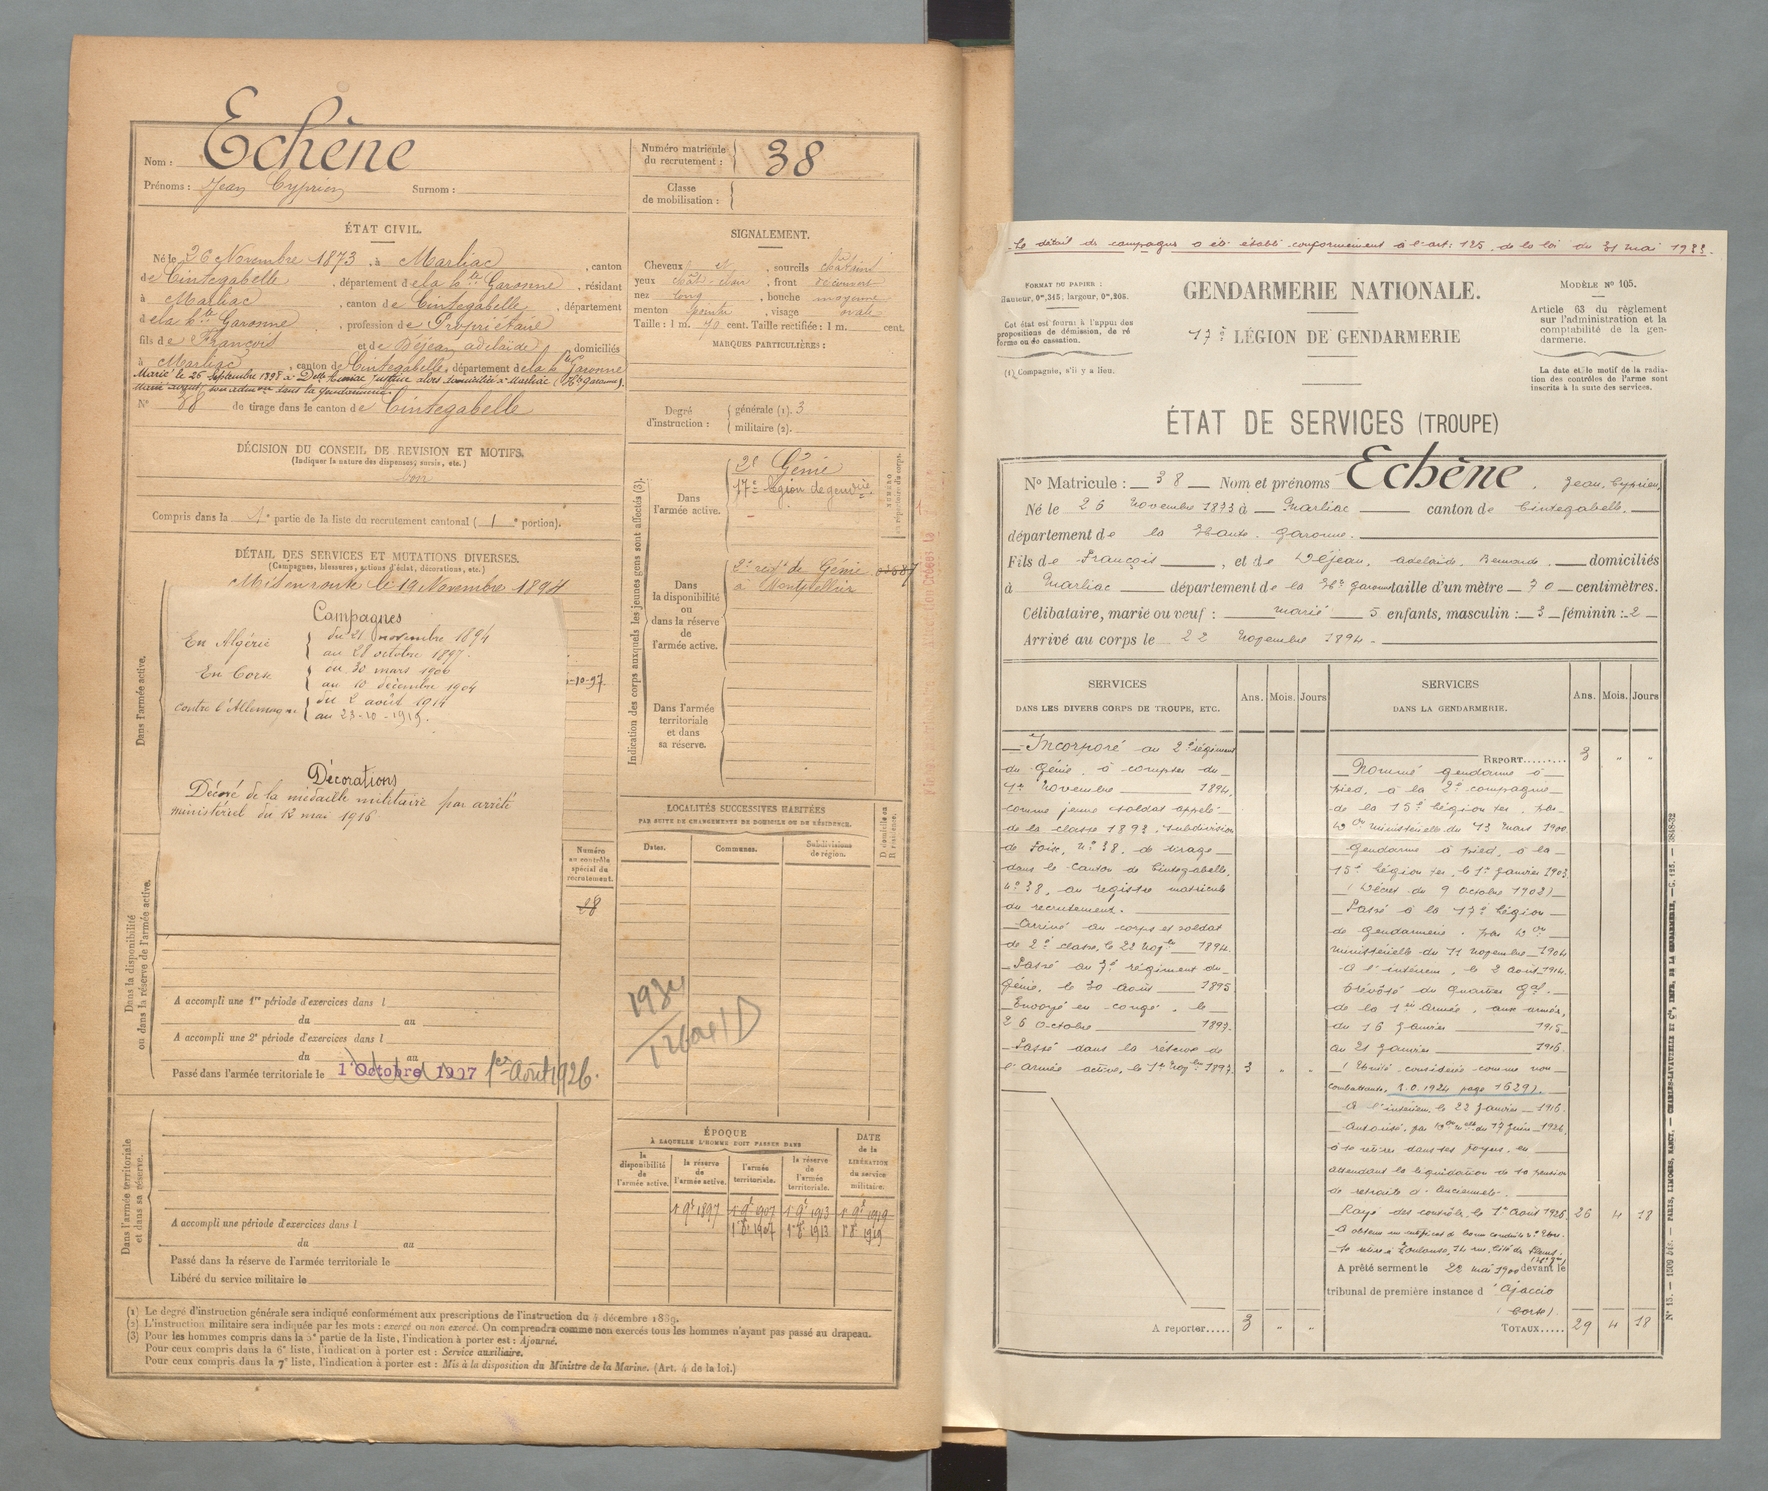 Nom : Echène
Prénoms : Jean Cyprien Surnom :
Numéro matricule du recrutement : 38
Classe de mobilisation :
ÉTAT CIVIL.
Né le 26 Novembre 1873, à Marliac, canton
de Cintegabelle, département de la Hte Garonne, résidant
à Marliac, canton de Cintegabelle, département
de la Hte Garonne, profession de Propriétaire
fils de François et de Déjean adelaïde domiciliés
à Marliac, canton de Cintegabelle, département de la Hte Garonne
Marié le 26 Septembre 1898 à Delle
N° 38 de tirage dans le canton de Cintegabelle
SIGNALEMENT.
Cheveux et, sourcils châtains
yeux chât. clair, front découvert
nez long, bouche moyenne
menton pointu, visage ovale
Taille : 1 m. 70 cent. Taille rectifiée : 1 m. cent.
MARQUES PARTICULIÈRES :
Degré d'instruction : générale (1). 3
militaire (2).
DÉCISION DU CONSEIL DE REVISION ET MOTIFS.
(Indiquer la nature des dispenses, sursis, etc.)
bon
Compris dans la 1e partie de la liste du recrutement cantonal (1e portion).
DÉTAIL DES SERVICES ET MUTATIONS DIVERSES.
(Campagnes, blessures, actions d'éclat, décorations, etc.)
Mis en route le 19 Novembre 1894
Campagnes
En Algérie du 21 novembre 1894
au 28 octobre 1897.
En Corse du 30 mars 1900
au 10 décembre 1904
contre l'Allemagne du 2 août 1914
au 23-10-1919.
Décorations
Décoré de la médaille militaire par arrêté
ministériel du 12 mai 1916
-10-97
Dans l'armée active.
Dans la disponibilité ou dans la réserve de l'armée active.
Dans l'armée territoriale et dans sa réserve.
Numéro au contrôle spécial du recrutement.
28
A accompli une 1re période d'exercices dans l
du au
A accompli une 2e période d'exercices dans l
du au
Passé dans l'armée territoriale le 1 Octobre 1907 1er Août 1926.
A accompli une période d'exercices dans l
du au
Passé dans la réserve de l'armée territoriale le
Libéré du service militaire le
Indication des corps auxquels les jeunes gens sont affectés (3).
Dans l'armée active.
2e Génie
17e légion de gendrie
Dans la disponibilité ou dans la réserve de l'armée active.
2e régt de Génie
à Montpellier
Dans l'armée territoriale et dans sa réserve.
LOCALITÉS SUCCESSIVES HABITÉES
PAR SUITE DE CHANGEMENTS DE DOMICILE OU DE RÉSIDENCE.
Dates. Communes. Subdivisions de région. D domicile ou R résidence.
1934
ÉPOQUE
À LAQUELLE L'HOMME DOIT PASSER DANS
DATE de la LIBÉRATION du service militaire.
la disponibilité de l'armée active. la réserve de l'armée active. l'armée territoriale. la réserve de l'armée territoriale.
1 9e 1897 1 9e 1907 1 9e 1913 1 9e 1919
1 8e 1907 1 8e 1913 1 8e 1919
(1) Le degré d'instruction générale sera indiqué conformément aux prescriptions de l'instruction du 4 décembre 1889.
(2) L'instruction militaire sera indiquée par les mots : exercé ou non exercé. On comprendra comme non exercés tous les hommes n'ayant pas passé au drapeau.
(3) Pour les hommes compris dans la 5e partie de la liste, l'indication à porter est : Ajourné.
Pour ceux compris dans la 6e liste, l'indication à porter est : Service auxiliaire.
Pour ceux compris dans la 7e liste, l'indication à porter est : Mis à la disposition du Ministre de la Marine. (Art. 4 de la loi.)
Le détail de campagnes a été établi conformément à l'art: 125 de la loi du 31 mai 1933.
FORMAT DU PAPIER :
Hauteur, 0m,315; largeur, 0m,205.
Cet état est fourni à l'appui des propositions de démission, de réforme ou de cassation.
(1) Compagnie, s'il y a lieu.
GENDARMERIE NATIONALE.
17e LÉGION DE GENDARMERIE
MODÈLE N° 105.
Article 63 du règlement sur l'administration et la comptabilité de la gendarmerie.
La date et le motif de la radiation des contrôles de l'arme sont inscrits à la suite des services.
ÉTAT DE SERVICES (TROUPE)
N° Matricule : 38 Nom et prénoms Echène, Jean, Cyprien,
Né le 26 novembre 1873 à Marliac canton de Cintegabelle.
département de la Haute Garonne.
Fils de François, et de Dejean, adelaïde, Bernarde. domiciliés
à Marliac département de la Hte Garonne taille d'un mètre 70 centimètres.
Célibataire, marié ou veuf : marié 5 enfants, masculin : 3 féminin : 2
Arrivé au corps le 22 novembre 1894.
SERVICES
DANS LES DIVERS CORPS DE TROUPE, ETC. Ans. Mois. Jours
Incorporé au 2e régiment
du Génie, à compter du
1er novembre 1894,
comme jeune soldat appelé
de la classe 1893, subdivision
de Foix, n° 38, de tirage
dans le canton de Cintegabelle,
n° 38, au registre matricule
du recrutement.
Arrivé au corps et soldat
de 2e classe, le 22 nov 1894.
Passé au 7e régiment du
Génie, le 30 août 1895
Envoyé en congé, le
26 octobre 1897.
Passé dans la réserve de
l'armée active, le 1er nov 1897. 3 " "
A reporter..... 3 " "
SERVICES
DANS LA GENDARMERIE. Ans. Mois. Jours
REPORT......... 3 " "
Nommé gendarme à
pied, à la 2e compagnie
de la 15e légion ter, par
don ministérielle du 13 mars 1900
Gendarme à pied, à la
15e légion ter, le 1er janvier 1903
(Décret du 9 octobre 1902)
Passé à la 17e légion
de gendarmerie, par don
ministérielle du 11 novembre 1904
A l'intérieur, le 2 août 1914.
Prévôté du Quartier Gal.
de la 1ère Armée, aux armées,
du 16 janvier 1915
au 21 janvier 1916.
(Unité considérée comme non
combattante, B.O. 1924 page 1629).
A l'intérieur, le 22 janvier 1916.
Autorisé, par don mlle du 17 juin 1926,
à se retirer dans ses foyers, en
attendant la liquidation de sa pension
de retraite d'ancienneté.
Rayé des contrôles, le 1er août 1926 26 4 18
A obtenu un certificat de bonne conduite
Se retire à Toulouse,
A prêté serment le 22 mai 1900 devant le
tribunal de première instance d'Ajaccio
(Corse)
TOTAUX..... 29 4 18
N° 15. — 1509 bis. — PARIS, LIMOGES, NANCY. — CHARLES-LAVAUZELLE ET Cie, IMPR. DE LA GENDARMERIE. — G. 125. — 3848-32